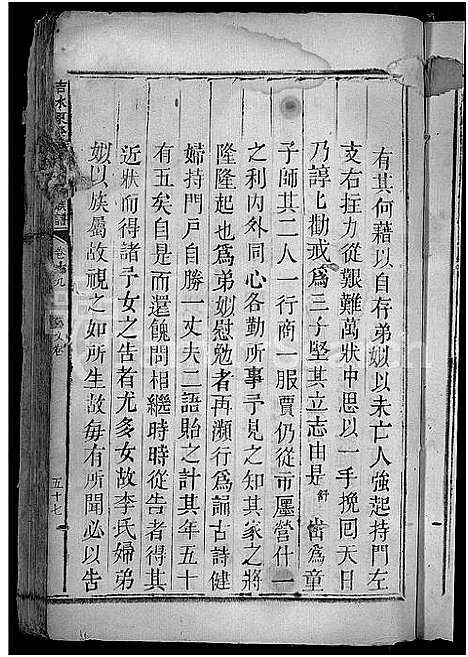 有其何藉以自存弟姒以未亡人強起持門左
支右拄力從艱難萬狀中思以一手挽囘天日
乃諄匕勸戒爲三子堅其立志由是舒嵩爲童
子師其二人一行商一服賈仍從市廛營什一
之利內外同心各勤所事予見之知其家之將
隆隆起也爲弟姒慰勉者再瀕行爲誦古詩健
婦持門戶自勝一丈夫二語貽之計其年五十
有五矣自是而還餽問相繼時時從告者得其
近狀而得諸予女之告者尤多女故李氏婦弟
姒以族屬故視之如所生故每有所聞必以告
吉水
族譜
卷
五十七